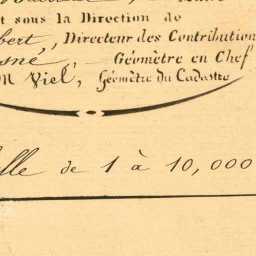 t sous la Direction de
bert, Directeur des Contribution
sné, Géomètre en Chef
Viel, Géomètre du Cadastre
lle de 1 à 10,000